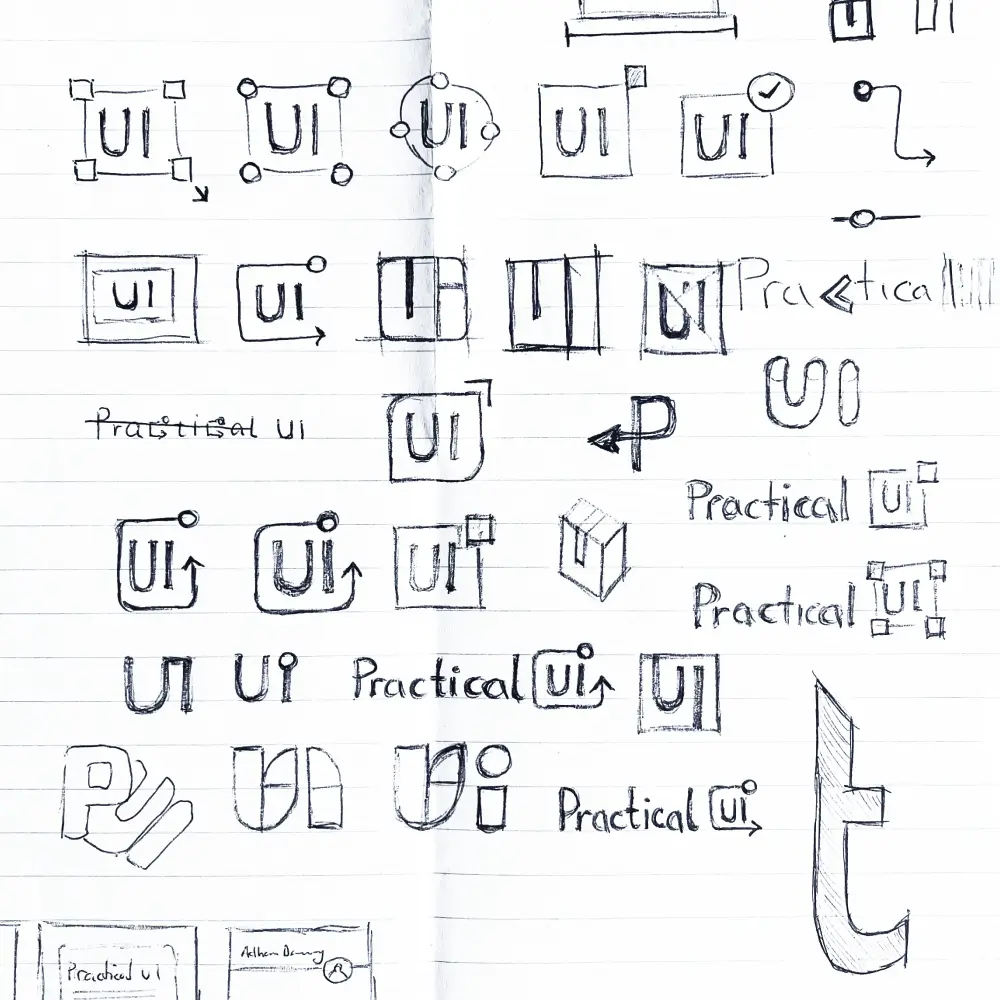 UI UI UI UI UI
UI UI UI Practical
UI
Practical UI UI P
Practical UI
UI UI UI
Practical UI
UI Ui Practical Ui UI
P UI Ui Practical Ui
t
Practical UI